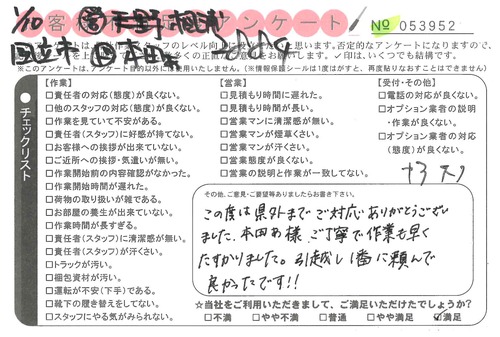 1/10
アンケート
№ 053952
国立市
チェックリスト
※このアンケートは、アンケート目的以外には使用いたしません。(※情報保護シールは1度はがすと、再度貼りなおすことはできません)
【作業】
□責任者の対応(態度)が良くない。
□他のスタッフの対応(態度)が良くない。
□作業を見ていて不安がある。
□責任者(スタッフ)に好感が持てない。
□お客様への挨拶が出来ていない。
□ご近所への挨拶・気遣いが無い。
□作業開始前の内容確認がなかった。
□作業開始時間が遅れた。
□荷物の取り扱いが雑である。
□お部屋の養生が出来ていない。
□作業時間が長すぎる。
□責任者(スタッフ)に清潔感が無い。
□責任者(スタッフ)が汗くさい。
□トラックが汚い。
□梱包資材が汚い。
□運転が不安(下手)である。
□靴下の履き替えをしてない。
□スタッフにやる気がみられない。
【営業】
□見積もり時間に遅れた。
□見積もり時間が長い。
□営業マンに清潔感が無い。
□営業マンが煙草くさい。
□営業マンが汗くさい。
□営業態度が良くない。
□営業の説明と作業が一致してない。
【受付・その他】
□電話の対応が良くない。
□オプション業者の説明
・作業が良くない。
□オプション業者の対応
(態度)が良くない。
その他、ご意見・ご要望等ありましたらお書き下さい。
この度は県外まで ご対応ありがとうござい
ました。本田あ様、ご丁寧で作業も早く
たすかりました。引越し1番に頼んで
良かったです!!
☆当社をご利用いただきまして、ご満足いただけたでしょうか?
□不満 □やや不満 □普通 □やや満足 ☑満足